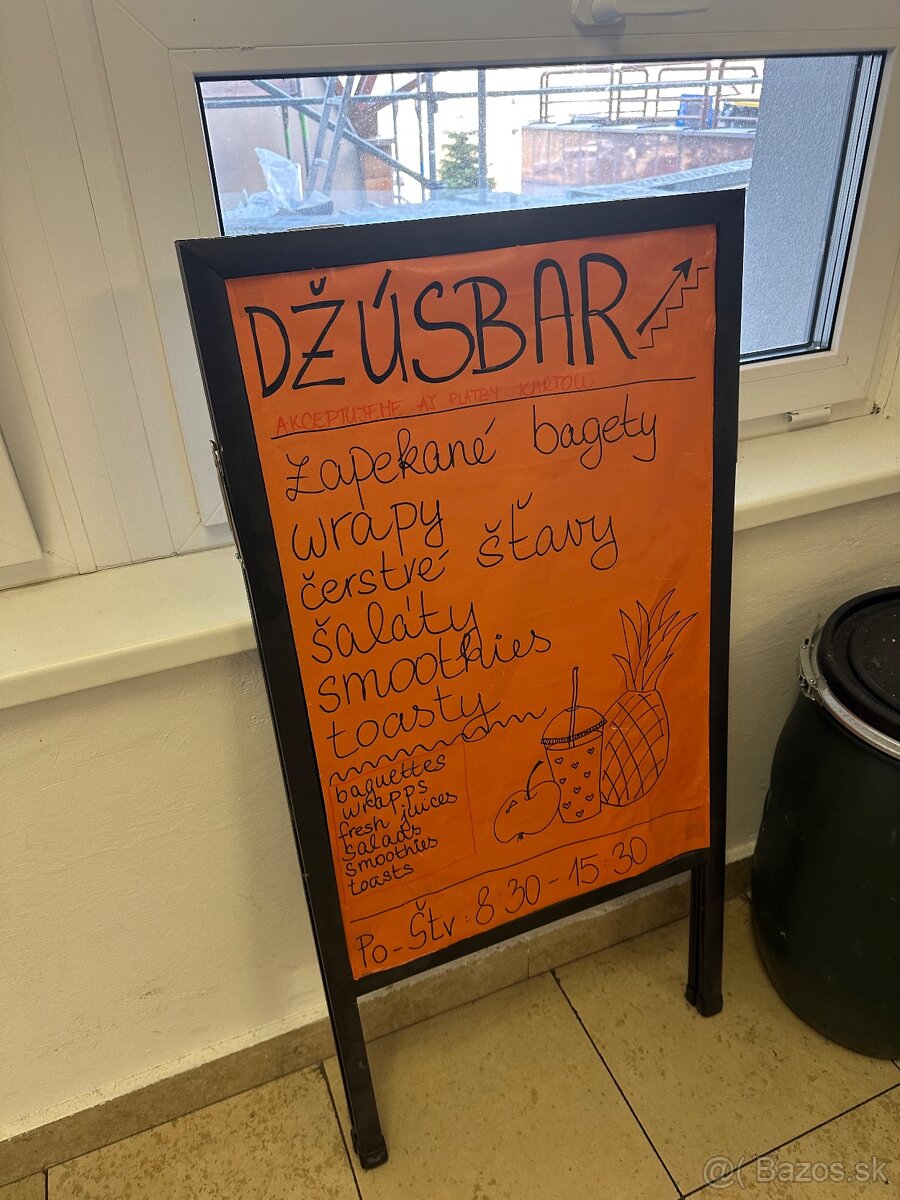 DŽÚSBAR
AKCEPTUJEME AJ PLATBY KARTOU
zapekané bagety
wrapy
čerstvé šťavy
šaláty
smoothies
toasty
baguettes
wrapps
fresh juices
salads
smoothies
toasts
Po-Štv: 8:30-15:30
@( Bazos.sk